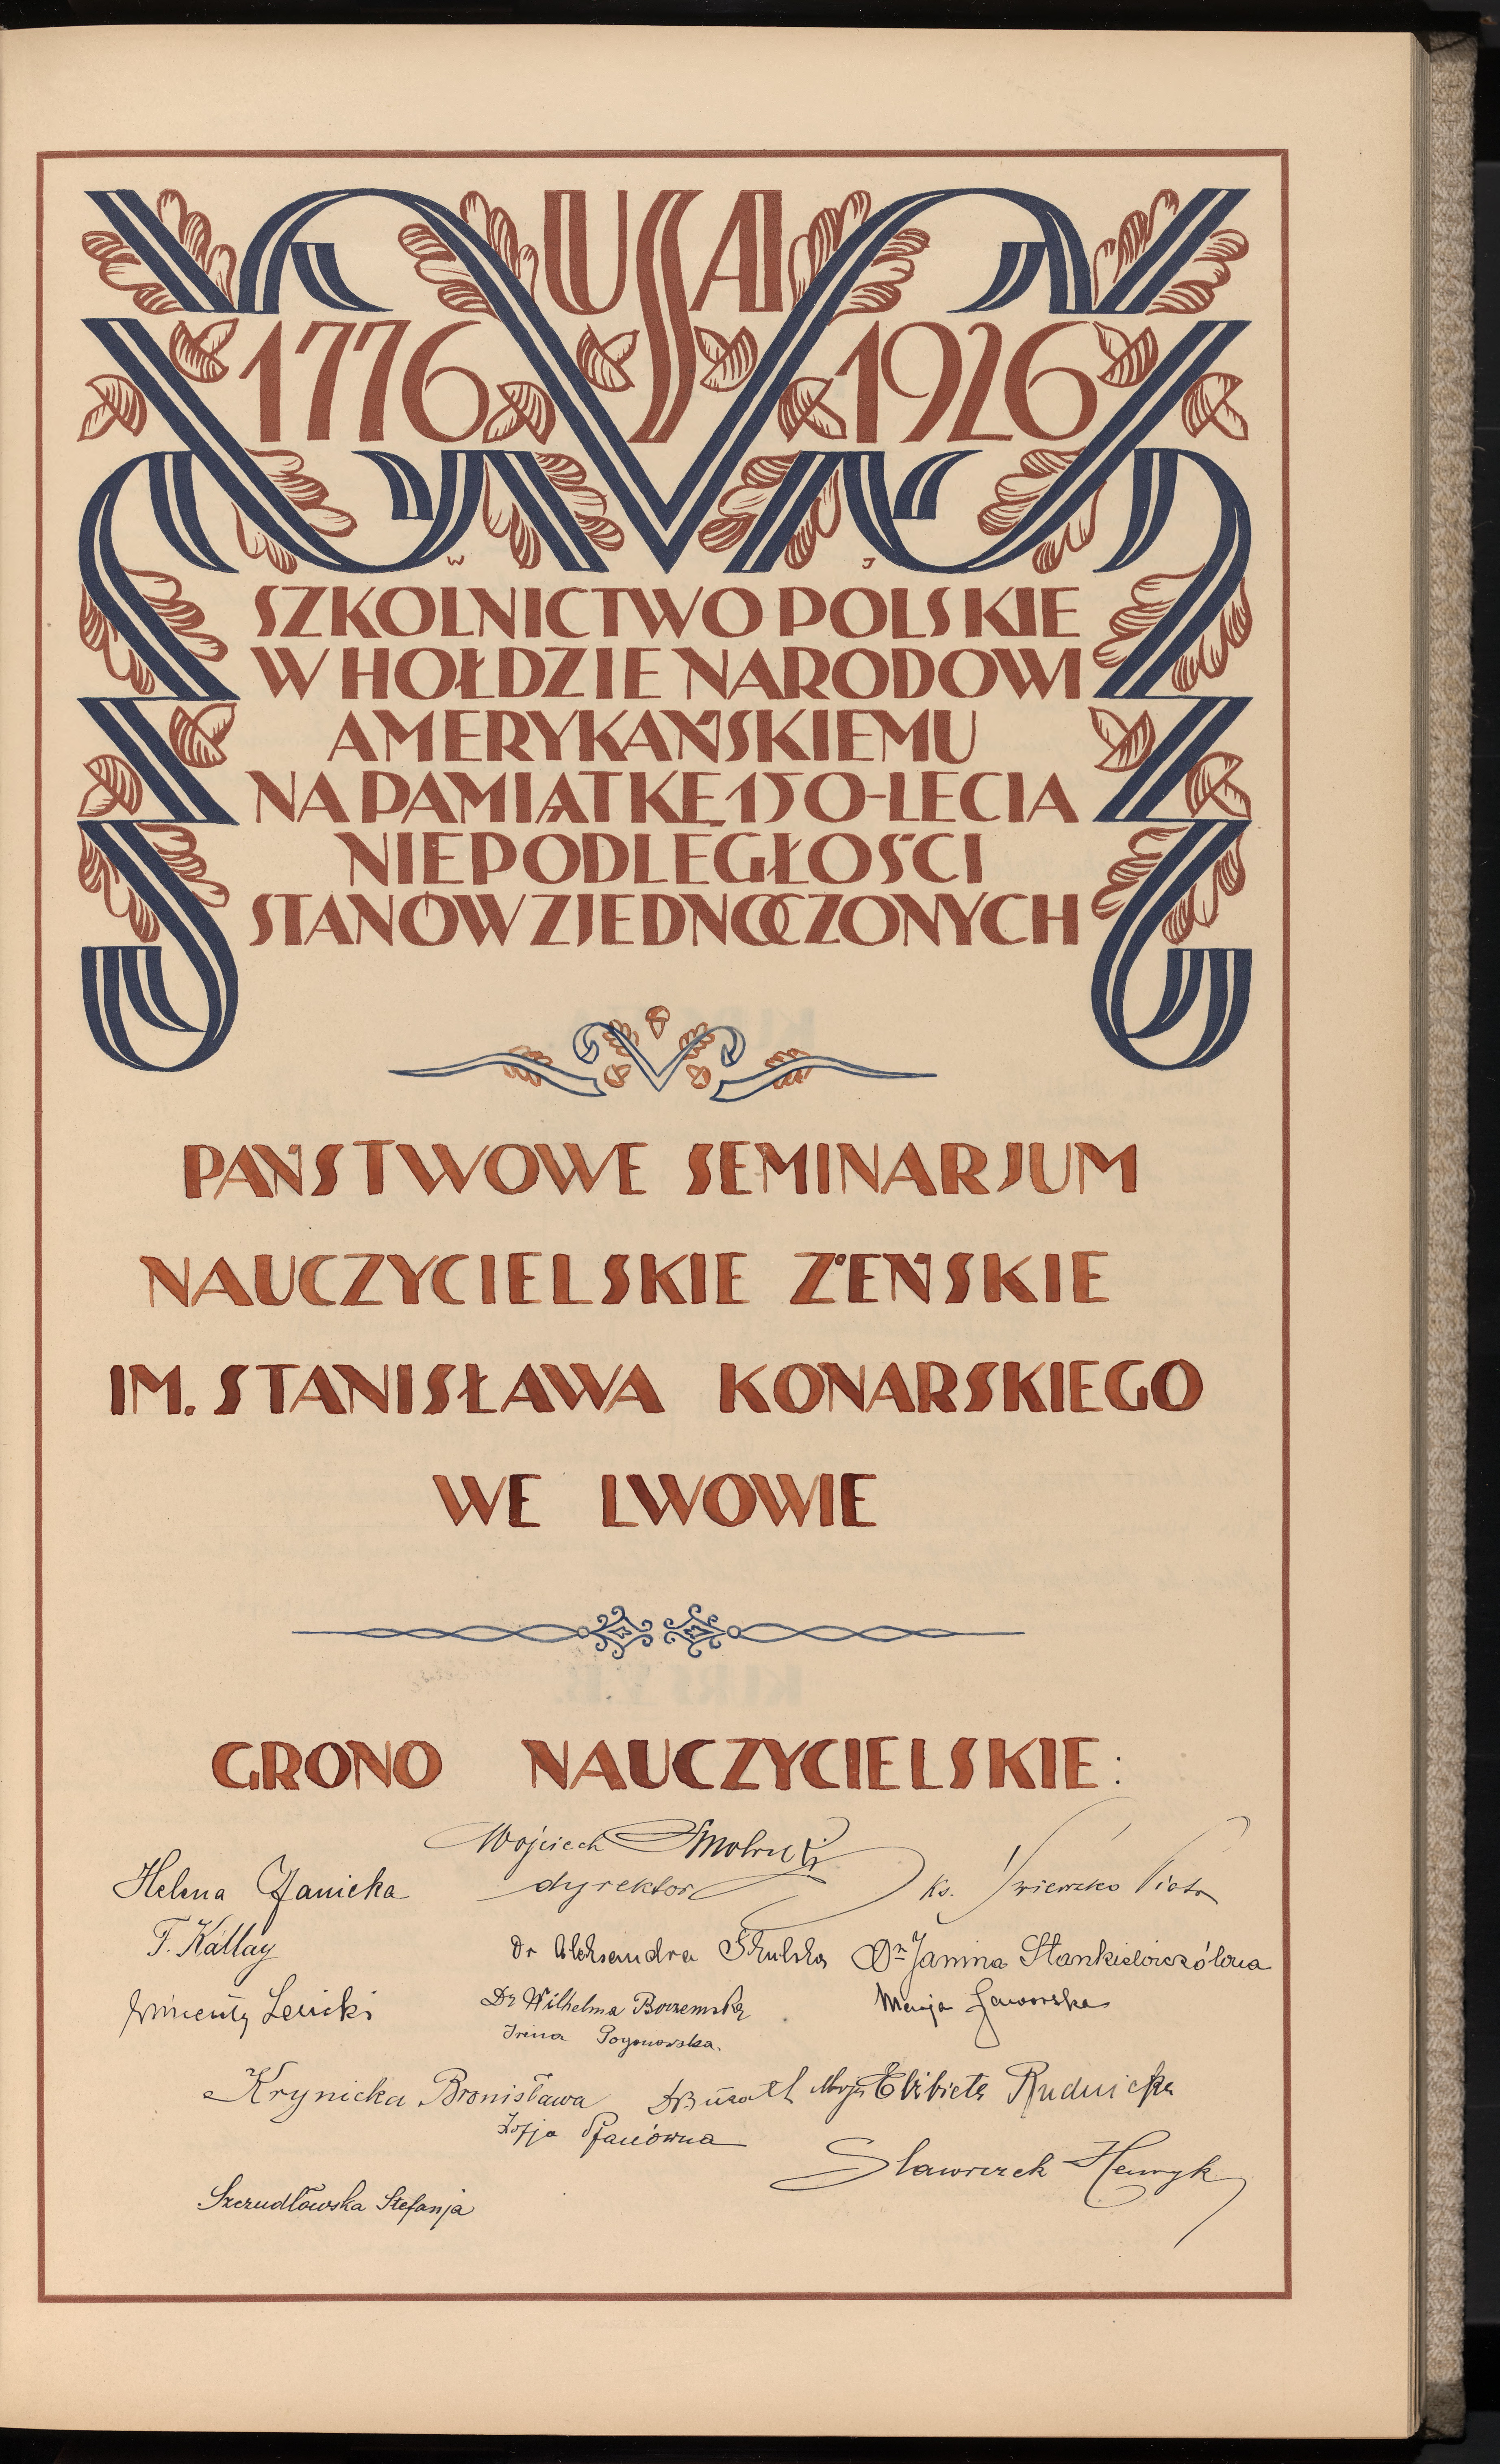 USA
1776 1926
W J
SZKOLNICTWO POLSKIE
W HOŁDZIE NARODOWI
AMERYKAŃSKIEMU
NA PAMIĄTKĘ 150-LECIA
NIEPODLEGŁOŚCI
STANÓW ZJEDNOCZONYCH
PAŃSTWOWE SEMINARJUM
NAUCZYCIELSKIE ŻEŃSKIE
IM. STANISŁAWA KONARSKIEGO
WE LWOWIE
GRONO NAUCZYCIELSKIE:
Wojciech
Helena Janicka dyrektor ks. Piotr
F. Kallay Dr Aleksandra Skulska Dr Janina Stankiewiczówna
Wincenty Lewicki Dr Wilhelma Borzemska Marja Jaworska
Irena Pogonowska.
Krynicka Bronisława Elżbieta Rudnicka
Zofja
Sławiczek Henryk
Szczudłowska Stefanja